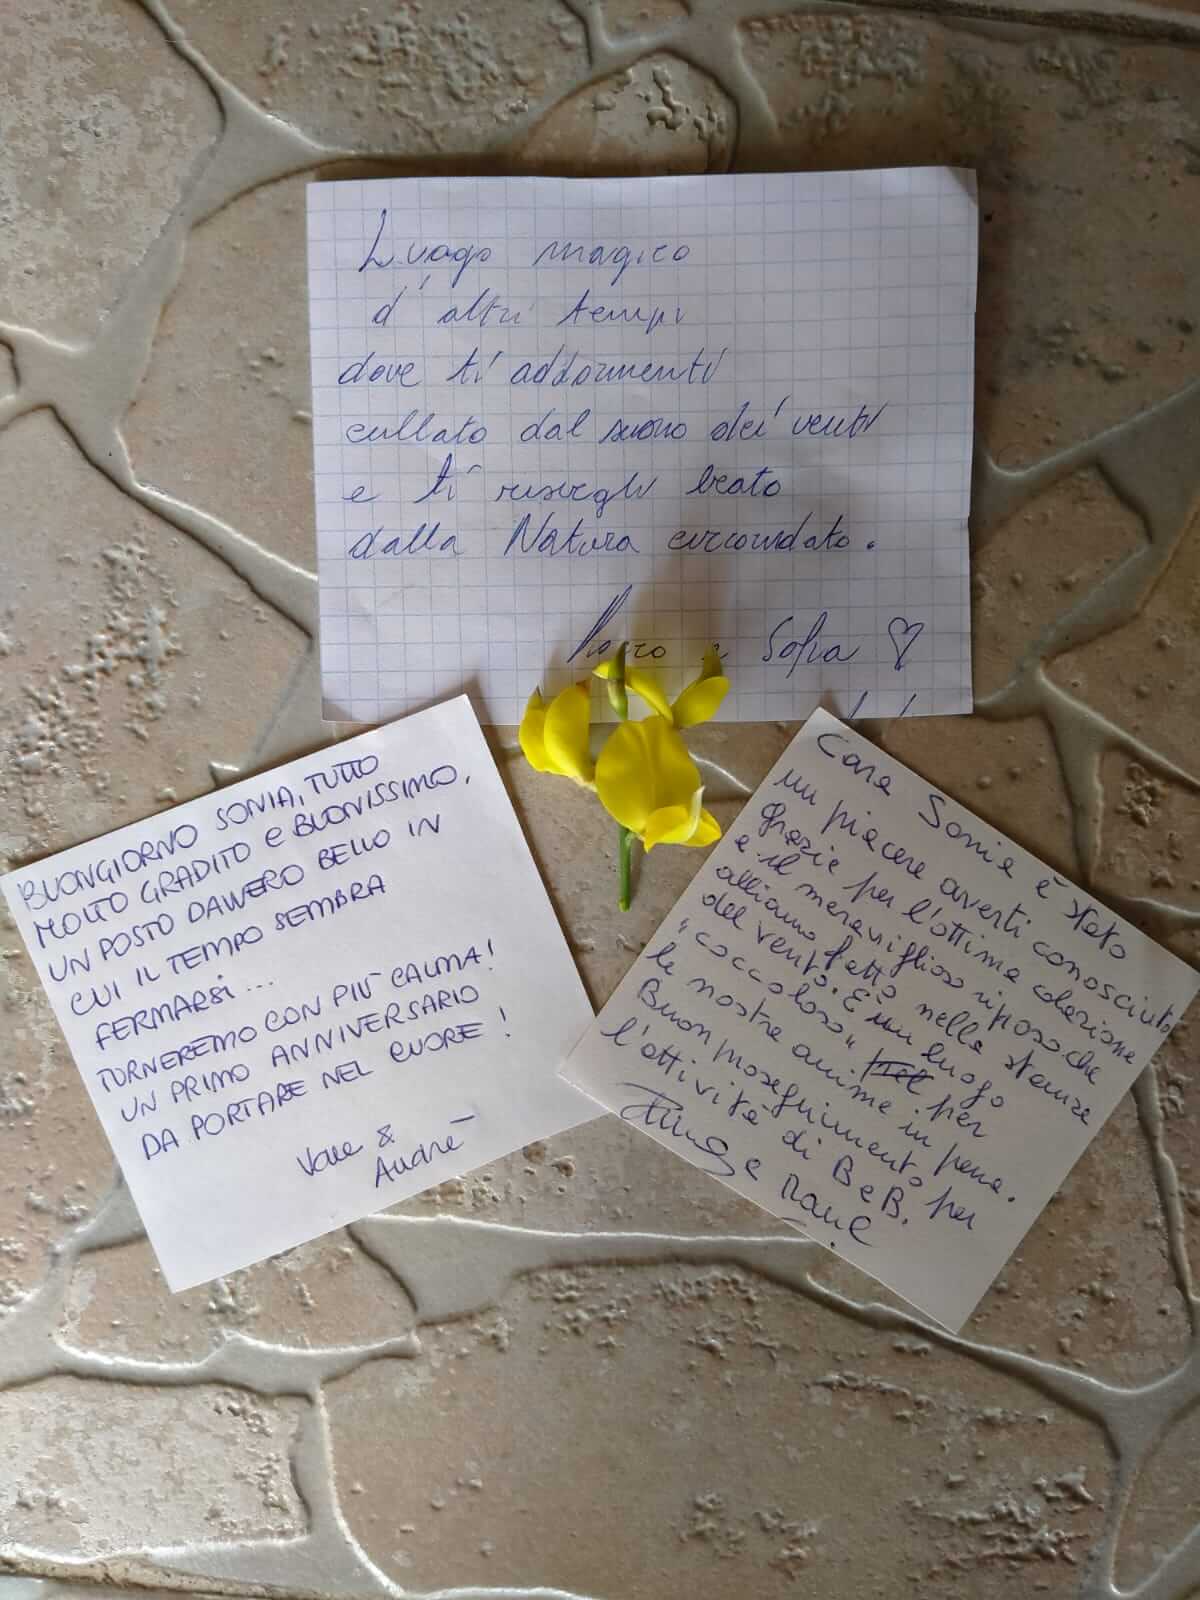 Luogo magico
d'altri tempi
dove ti addormenti
cullato dal suono dei venti
e ti risvegli beato
dalla Natura circondato.
e Sofia ♡
BUONGIORNO SONIA, TUTTO
MOLTO GRADITO E BUONISSIMO,
UN POSTO DAVVERO BELLO IN
CUI IL TEMPO SEMBRA
FERMARSI...
TORNEREMO CON PIÙ CALMA!
UN PRIMO ANNIVERSARIO
DA PORTARE NEL CUORE!
Vale &
Andre
Cara Sonia è stato
un piacere averti conosciuta
grazie per l'ottima colazione
e il meraviglioso riposo che
abbiamo fatto nella stanza
del vento. È un luogo
"coccoloso" per
le nostre anime in pena.
Buon proseguimento per
l'attività di B e B.
e Raul